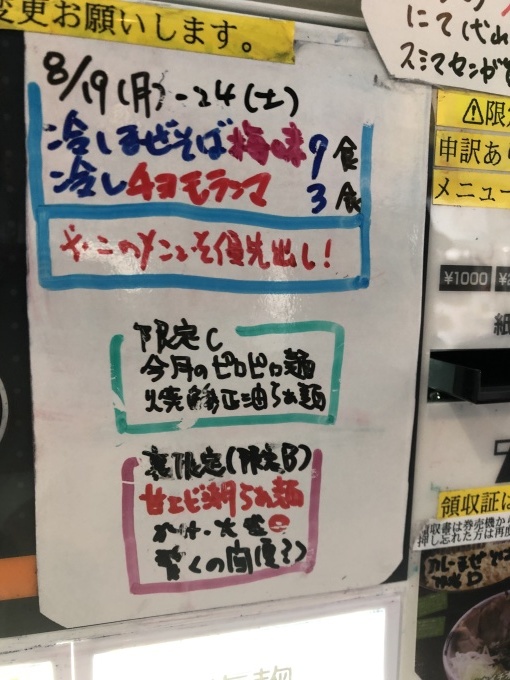 変更お願いします。
8/19(月)-24(土)
冷しまぜそば梅味9食
冷し4ヨモランマ3食
※このメニューを優先出し!
限定C
今月のピロピロ麺
焼鯖正油らぁ麺
裏限定(限定B)
甘エビ潮らぁ麺
にて代
スミマセンが
⚠限定
申訳あり
メニュー
¥1000
紙
領収証は
領収書は券売機から
押し忘れた方は再度
カレーまぜそば